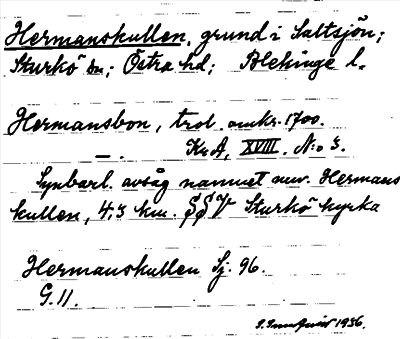 Hermanskullen, grund i Saltsjön;
Sturkö sn; Östra hd; Blekinge l.
Hermansbon, trol. omkr. 1700.
— . Kr.A, XVIII. N:o 3.
Synbarl. avsåg namnet nuv. Hermans
kullen, 4,3 km. SSV Sturkö kyrka
Hermanskullen Sj. 96.
G. 11.
1936.